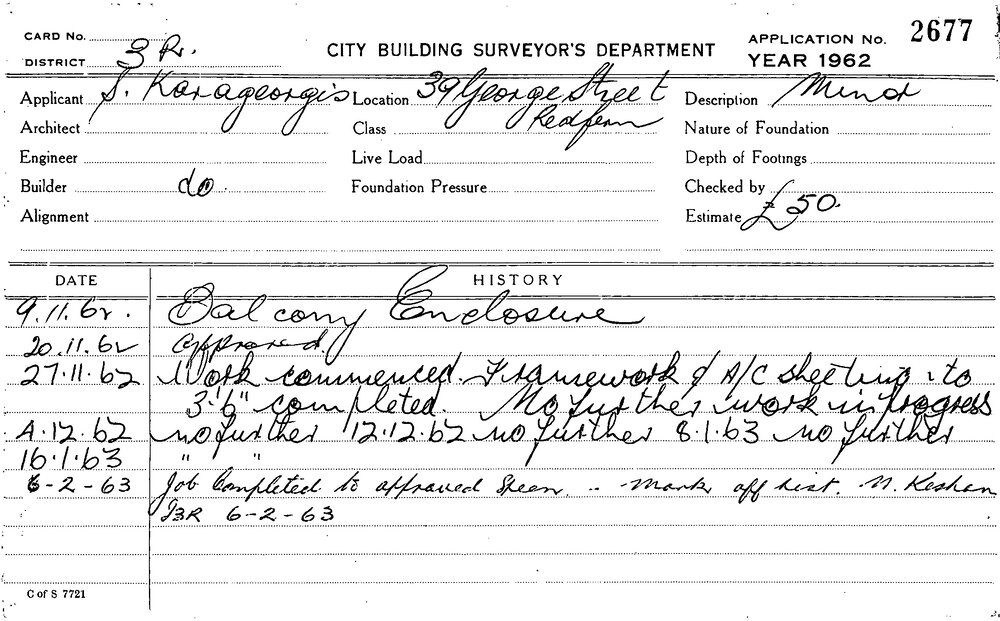 CARD No.
DISTRICT 3 R.
CITY BUILDING SURVEYOR'S DEPARTMENT
APPLICATION No. 2677
YEAR 1962
Applicant S. Karageorgis Location 39 George Street Description Minor
Architect Class Redfern Nature of Foundation
Engineer Live Load Depth of Footings
Builder do. Foundation Pressure Checked by
Alignment Estimate £50.
DATE HISTORY
9.11.62. Balcony Enclosure
20.11.62 approved.
27.11.62 Work commenced. Framework & A/C sheeting to
3'-6" completed. No further work in progress
4.12.62 no further 12.12.62 no further 8.1.63 no further
16.1.63 " "
6-2-63 Job Completed to approved .. Mark off list.
6-2-63
C of S 7721